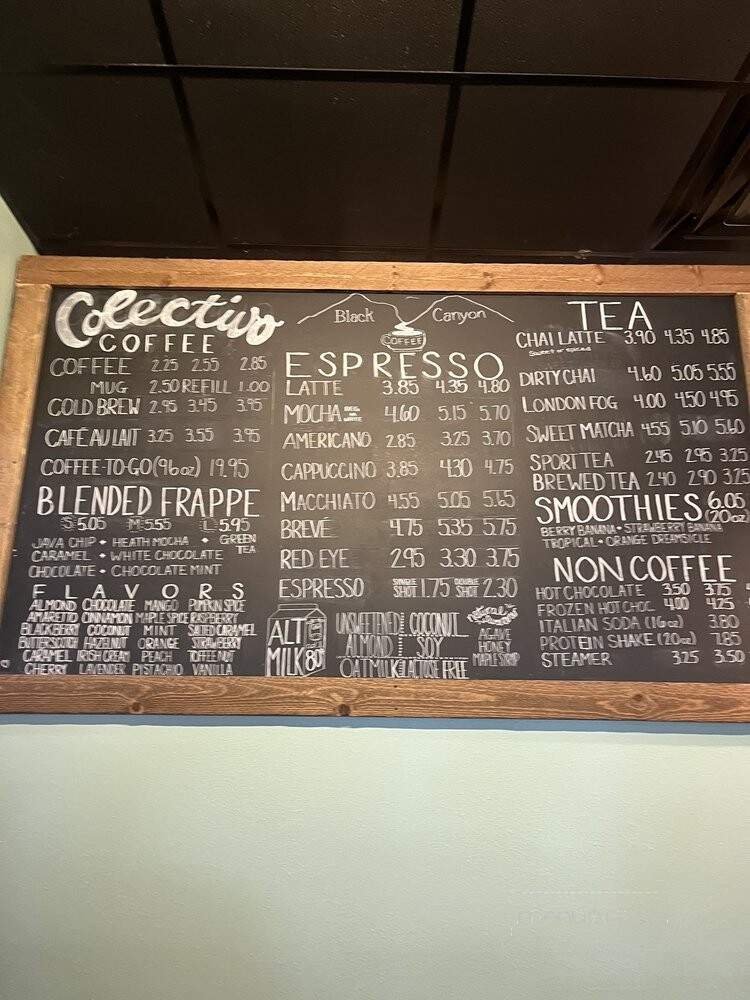 Colectivo
COFFEE
COFFEE 2.25 2.55 2.85
MUG 2.50 REFILL 1.00
COLD BREW 2.95 3.45 3.95
CAFÉ AU LAIT 3.25 3.55 3.95
COFFEE-TO-GO (96oz) 19.95
BLENDED FRAPPE
S 5.05 M 5.55 L 5.95
JAVA CHIP • HEATH MOCHA • GREEN TEA
CARAMEL • WHITE CHOCOLATE
CHOCOLATE • CHOCOLATE MINT
FLAVORS
ALMOND CHOCOLATE MANGO PUMPKIN SPICE
AMARETTO CINNAMON MAPLE SPICE RASPBERRY
BLACKBERRY COCONUT MINT SALTED CARAMEL
BUTTERSCOTCH HAZELNUT ORANGE STRAWBERRY
CARAMEL IRISH CREAM PEACH TOFFEE NUT
CHERRY LAVENDER PISTACHIO VANILLA
Black Canyon
COFFEE
ESPRESSO
LATTE 3.85 4.35 4.80
MOCHA 4.60 5.15 5.70
AMERICANO 2.85 3.25 3.70
CAPPUCCINO 3.85 4.30 4.75
MACCHIATO 4.55 5.05 5.65
BREVÉ 4.75 5.35 5.75
RED EYE 2.95 3.30 3.75
ESPRESSO SINGLE SHOT 1.75 DOUBLE SHOT 2.30
ALT MILK 80¢
UNSWEETENED ALMOND
OATMILK
COCONUT
SOY
LACTOSE FREE
AGAVE
HONEY
MAPLE SYRUP
TEA
CHAI LATTE 3.90 4.35 4.85
Sweet or spiced
DIRTY CHAI 4.60 5.05 5.55
LONDON FOG 4.00 4.50 4.95
SWEET MATCHA 4.55 5.10 5.60
SPORT TEA 2.45 2.95 3.25
BREWED TEA 2.40 2.90 3.25
SMOOTHIES 6.05 (20oz)
BERRY BANANA • STRAWBERRY BANANA
TROPICAL • ORANGE DREAMSICLE
NON COFFEE
HOT CHOCOLATE 3.50 3.75
FROZEN HOT CHOC. 4.00 4.25
ITALIAN SODA (16oz) 3.80
PROTEIN SHAKE (20oz) 7.85
STEAMER 3.25 3.50